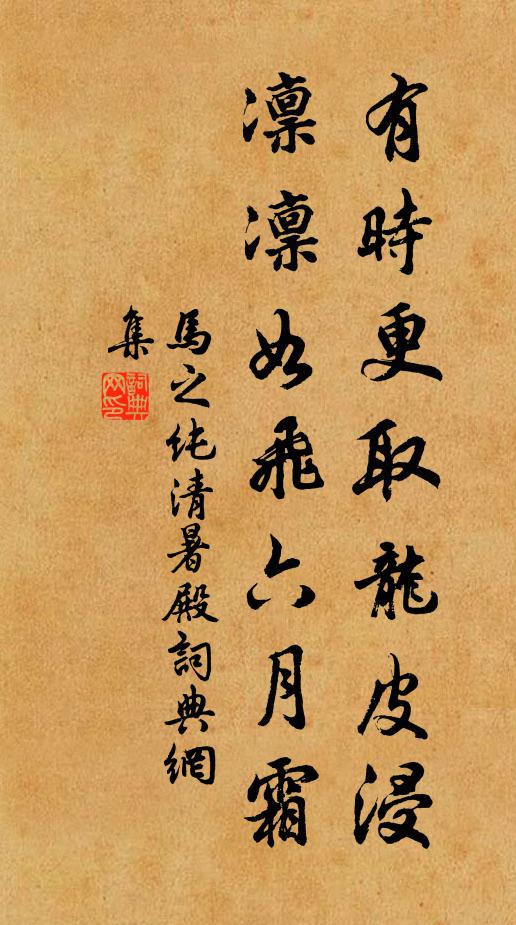 有時更取龍皮浸
凜凜如飛六月霜
馬之純清暑殿詞典網
集
詞典
網印